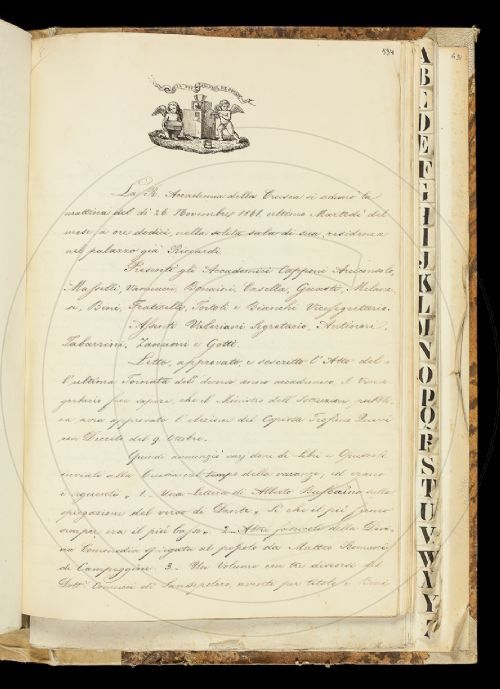 594
La R. Accademia della Crusca si adunò la
mattina del dì 26 Novembre 1861, ultimo Martedì del
mese, a ore dodici, nella solita sala di sua residenza
nel palazzo già Riccardi.
Presenti gli Accademici Capponi Arciconsolo,
Maffei, Vannucci, Bonaini, Casella, Milane-
si, Bini, Fraticelli, Tortoli e Bianchi Vicesegretario.
Assenti Valeriani Segretario, Antinori
Tabarrini, Zannoni e Gotti.
Letto, approvato, e soscritto l'Atto del-
l'ultima Tornata del decorso anno accademico, il Vicese-
gretario fece sapere, che il Ministro dell'Istruzion pubbli-
ca avea approvata l'elezione del
con Decreto del 9 Ottobre.
Quindi annunziò varj doni di Libri e Opuscoli
inviati alla Crusca nel tempo delle vacanze, ed erano
i seguenti. 1. Una lettera di Alberto Buscaino sulla
spiegazione del verso di Dante, Sì che il piè fermo
sempre era il più basso. 2. Altro fascicolo della Divi-
na Commedia spiegata al popolo da Matteo Romani
di Campeggine. 3. Un Volume con tre discorsi del
Dott. di Sansepolcro, avente per titolo
A
B
C
D
E
F
G
H
I
J
K
L
M
N
O
P
Q
R
S
T
U
V
W
X
Y
Z